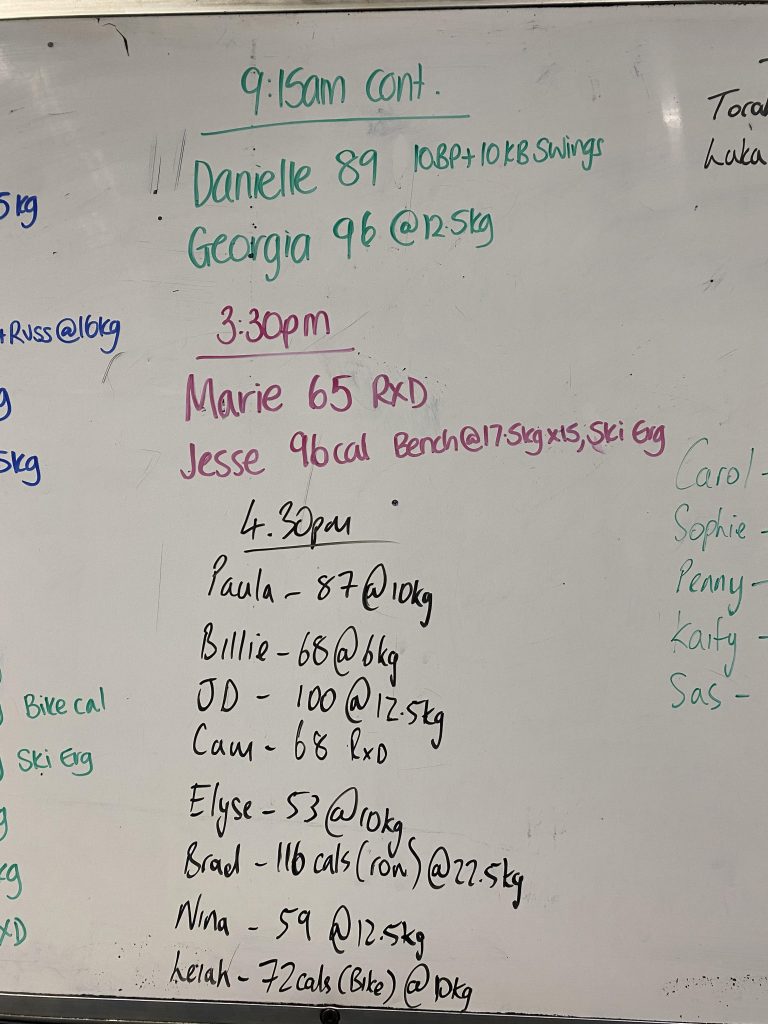 9:15am cont.
Danielle 89 10BP+10KB Swings
Georgia 96 @12.5kg
3:30pm
Marie 65 RXD
Jesse 96cal Bench@17.5kgx15, Ski Erg
4.30pm
Paula - 87@10kg
Billie - 68@6kg
JD - 100@12.5kg
Cam - 68 RxD
Elyse - 53@10kg
Brad - 116 cals (row) @22.5kg
Nina - 59 @12.5kg
Leiah - 72cals (Bike) @10kg
5kg
+Russ@16kg
g
5kg
Bike cal
Ski Erg
g
kg
XD
Luka
Carol -
Sophie -
Penny -
Kaity -
Sas -